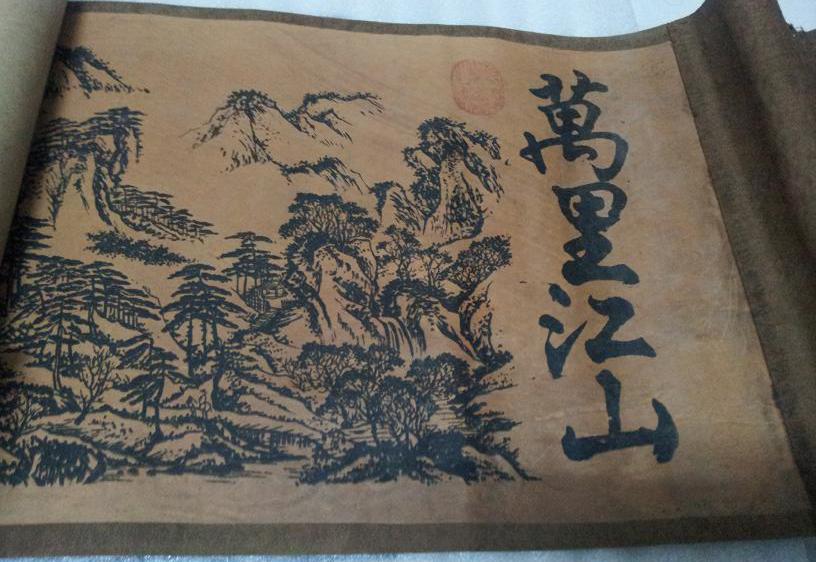 萬里江山